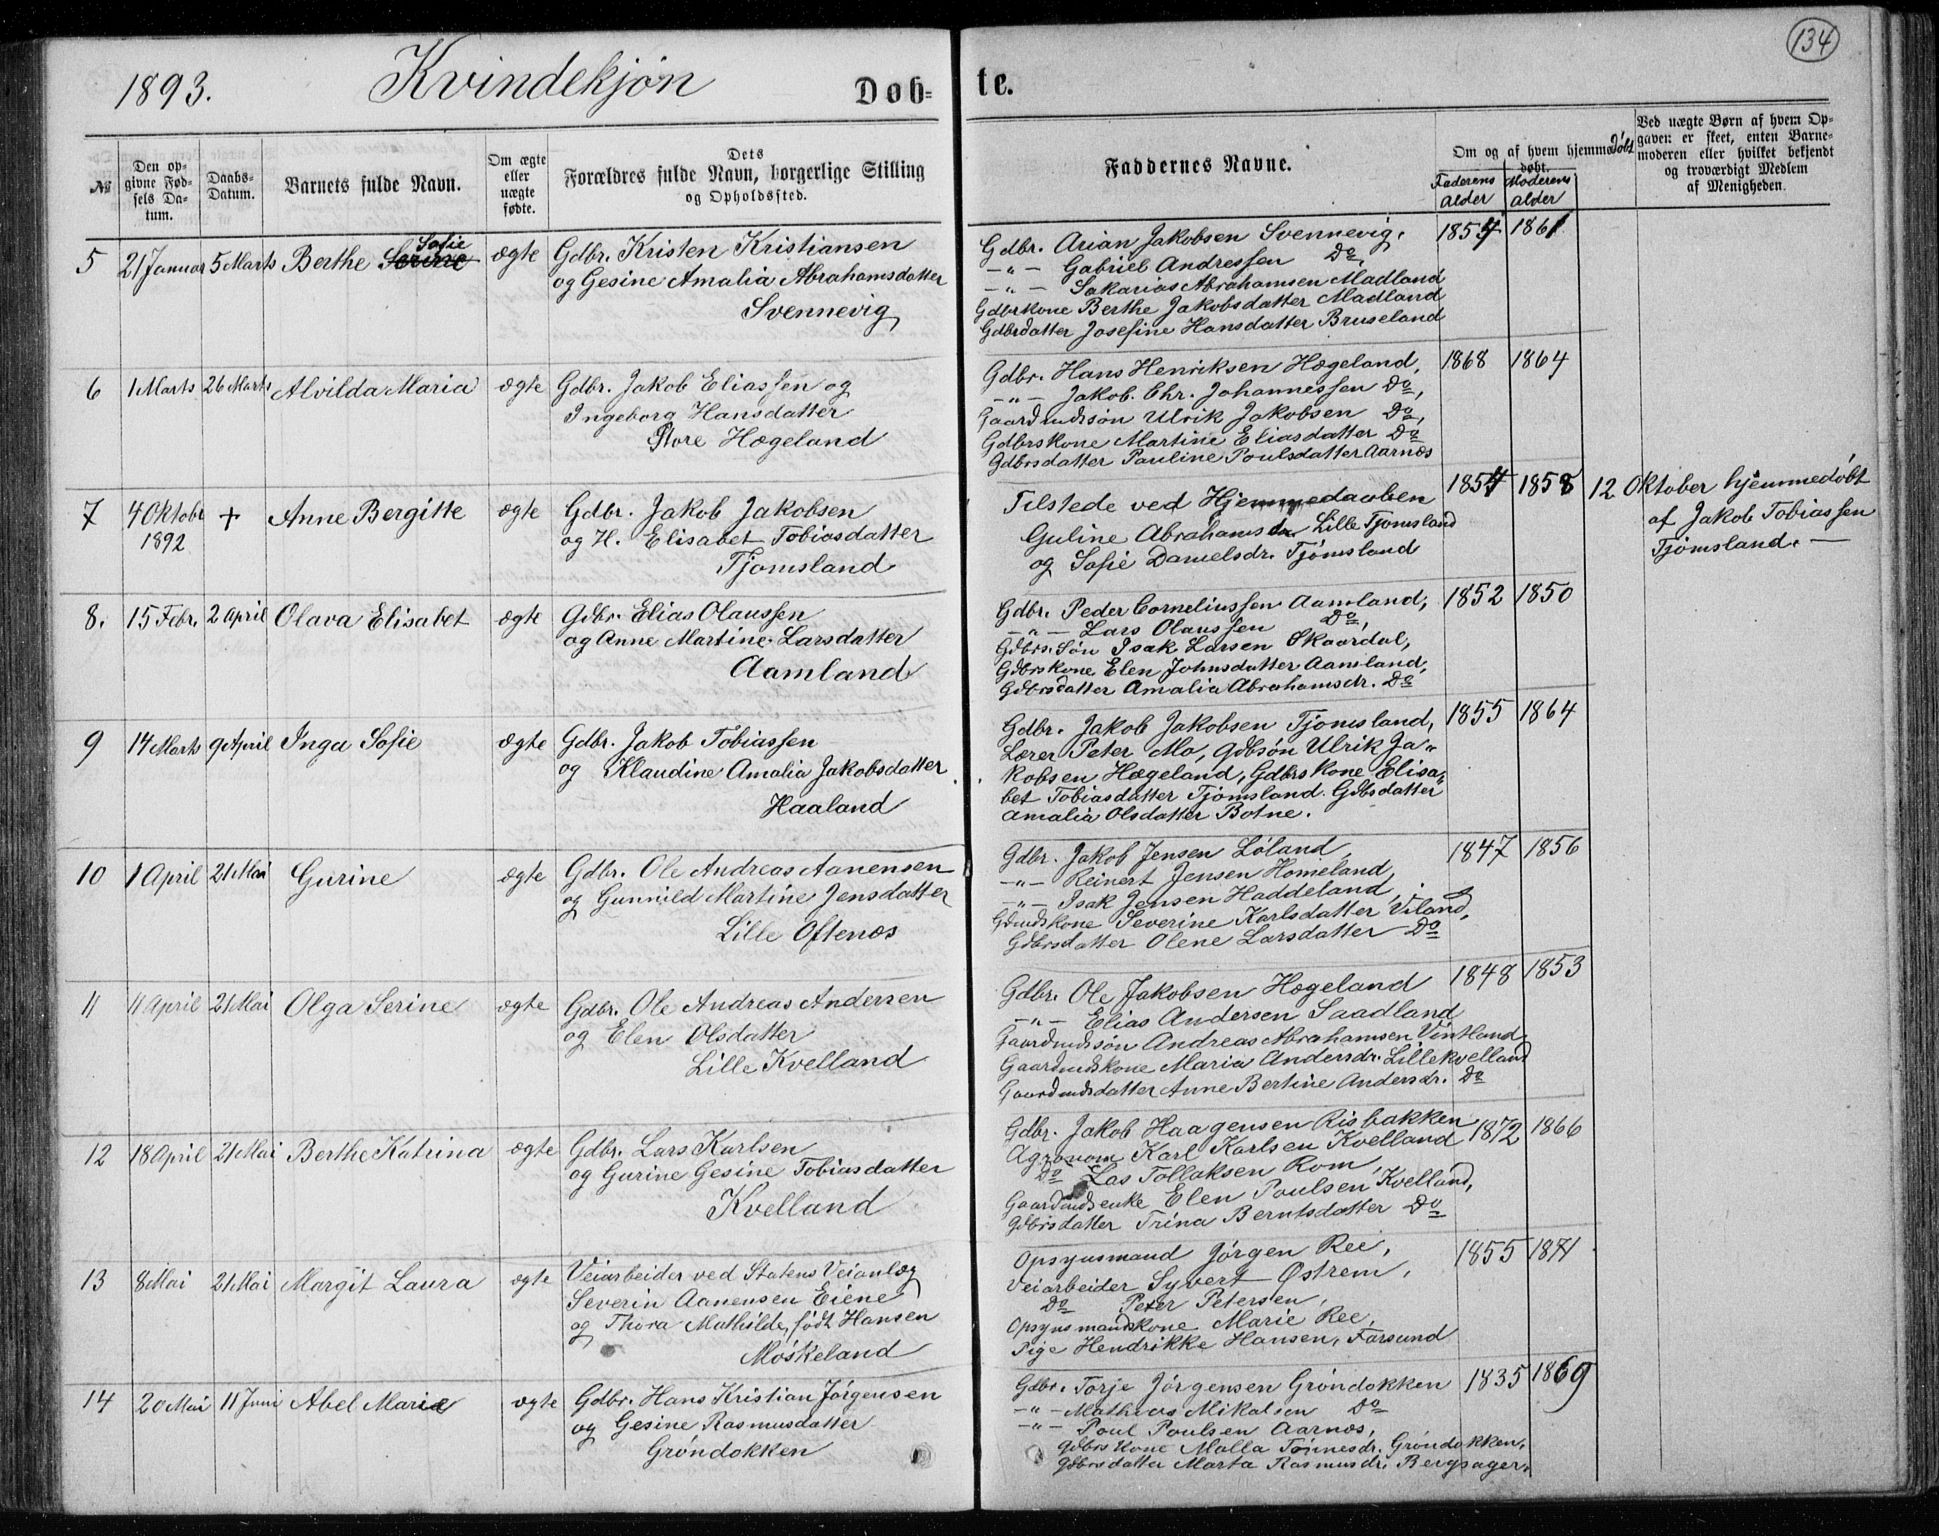 134
1893. Kvindekjøn Døb- te.
№
Den op-
givne Fød-
sels Da-
tum.
Daabs-
Datum.
Barnets fulde Navn.
Om ægte
eller
uægte
fødte.
Dets
Forældres fulde Navn, borgerlige Stilling
og Opholdssted.
Faddernes Navne.
Om og af hvem hjemmedøbt
døbt.
Faderens
Alder
Moderens
Alder
Ved uægte Børn af hvem Op-
gaven er skeet, enten Barne-
moderen eller hvilket bekjendt
og troværdigt Medlem
af Menigheden.
5 21 Januar 5 Marts Berthe Serine Sofie ægte
Gdbr. Kristen Kristiansen
og Gesine Amalia Abrahamsdatter
Svennevig
Gdbr. Arian Jakobsen Svennevig,
-"- Gabriel Andressen Do,
-"- Sakarias Abrahamsen Madland
Gdbrkone Berthe Jakobsdatter Madland
Gdbrdatter Josefine Hansdatter Bruseland
1854 1861
6 1 Marts 26 Marts Alvilda Maria ægte
Gdbr. Jakob Eliassen og
Ingeborg Hansdatter
Store Hægeland
Gdbr. Hans Henriksen Hægeland,
-"- Jakob. Chr. Johannessen Do,
Gaardmdssøn Ulrik Jakobsen Do,
Gdbrskone Martine Eliasdatter Do
Gdbrsdatter Pauline Poulsdatter Aarnes
1868 1864
7 4 Oktobr
1892
+ Anne Bergitte ægte
Gdbr. Jakob Jakobsen
og H. Elisabet Tobiasdatter
Tjomsland
Tilstede ved Hjemmedaaben
Guline Abrahamsdr Lille Tjomsland
og Sofie Danielsdr. Tjömsland
1854 1858
12 Oktober hjemmedøbt
af Jakob Tobiassen
Tjömsland. —
8. 15 Febr. 2 April Olava Elisabet ægte
Gdbr. Elias Olaussen
og Anne Martine Larsdatter
Aamland
Gdbr. Peder Corneliussen Aamland,
-"- Lars Olaussen Do,
Gdbrs. Søn Isak Larsen Skaardal,
Gdbrskone Elen Johnsdatter Aamland,
Gdbrsdatter Amalia Abrahamsdr. Do
1852 1850
9 14 Marts 9 April Inga Sofie ægte
Gdbr. Jakob Tobiassen
og Klaudine Amalia Jakobsdatter
Haaland
Gdbr. Jakob Jakobsen Tjomsland,
Lærer Peter Mo, Gdbsøn Ulrik Ja-
kobsen Hægeland, Gdbrskone Elisa-
bet Tobiasdatter Tjömsland. Gdbsdatter
Amalia Olsdatter Botne.
1855 1864
10 1 April 21 Mai Gurine ægte
Gdbr. Ole Andreas Aanensen
og Gunnild Martine Jensdatter
Lille Oftenes
Gdbr. Jakob Jensen Löland,
-"- Reinert Jensen Homeland,
-"- Isak Jensen Haddeland,
Gdmdskone Severine Karlsdatter Viland,
Gdbrsdatter Olene Larsdatter Do
1847 1856
11 11 April 21 Mai Olga Serine ægte
Gdbr. Ole Andreas Andersen
og Elen Olsdatter
Lille Kvelland
Gdbr. Ole Jakobsen Hægeland
-"- Elias Andersen Saadland
Gaardmdssøn Andreas Abrahamsen Vintland
Gaardmdskone Maria Andersdr. Lillekvelland
Gaardmdsdatter Anne Bertine Andersdr. Do
1848 1853
12 18 April 21 Mai Berthe Katrina ægte
Gdbr. Lars Karlsen
og Gurine Gesine Tobiasdatter
Kvelland
Gdbr. Jakob Haagensen Risbakken
Agronom Karl Karlsen Kvelland
Do Las Tollaksen Rom,
Gaardmdsenke Elen Poulsen Kvelland,
Gdbrsdatter Trina Berntsdatter Do
1872 1866
13 8 Mai 21 Mai Margit Laura ægte
Veiarbeider ved Statens Veianlæg
Severin Aanensen Eiene
og Thora Mathilde, født Hansen
Møskeland
Opsynsmand Jörgen Ree,
Veiarbeider Syvert Østrem,
Do Peter Petersen,
Opsynsmandskone Marie Ree,
Pige Hendrikke Hansen, Farsund
1855 1871
14 20 Mai 11 Juni Abel Marie ægte
Gdbr. Hans Kristian Jörgensen
og Gesine Rasmusdatter
Gröndokken
Gdbr. Torje Jörgensen Gröndokken
-"- Mathias Mikalsen Do
-"- Poul Poulsen Aarnes,
Gdbrs kone Malla Tönnesdr. Gröndokken,
Gdbrsdatter Marta Rasmusdr. Bergsager.
1835 1869